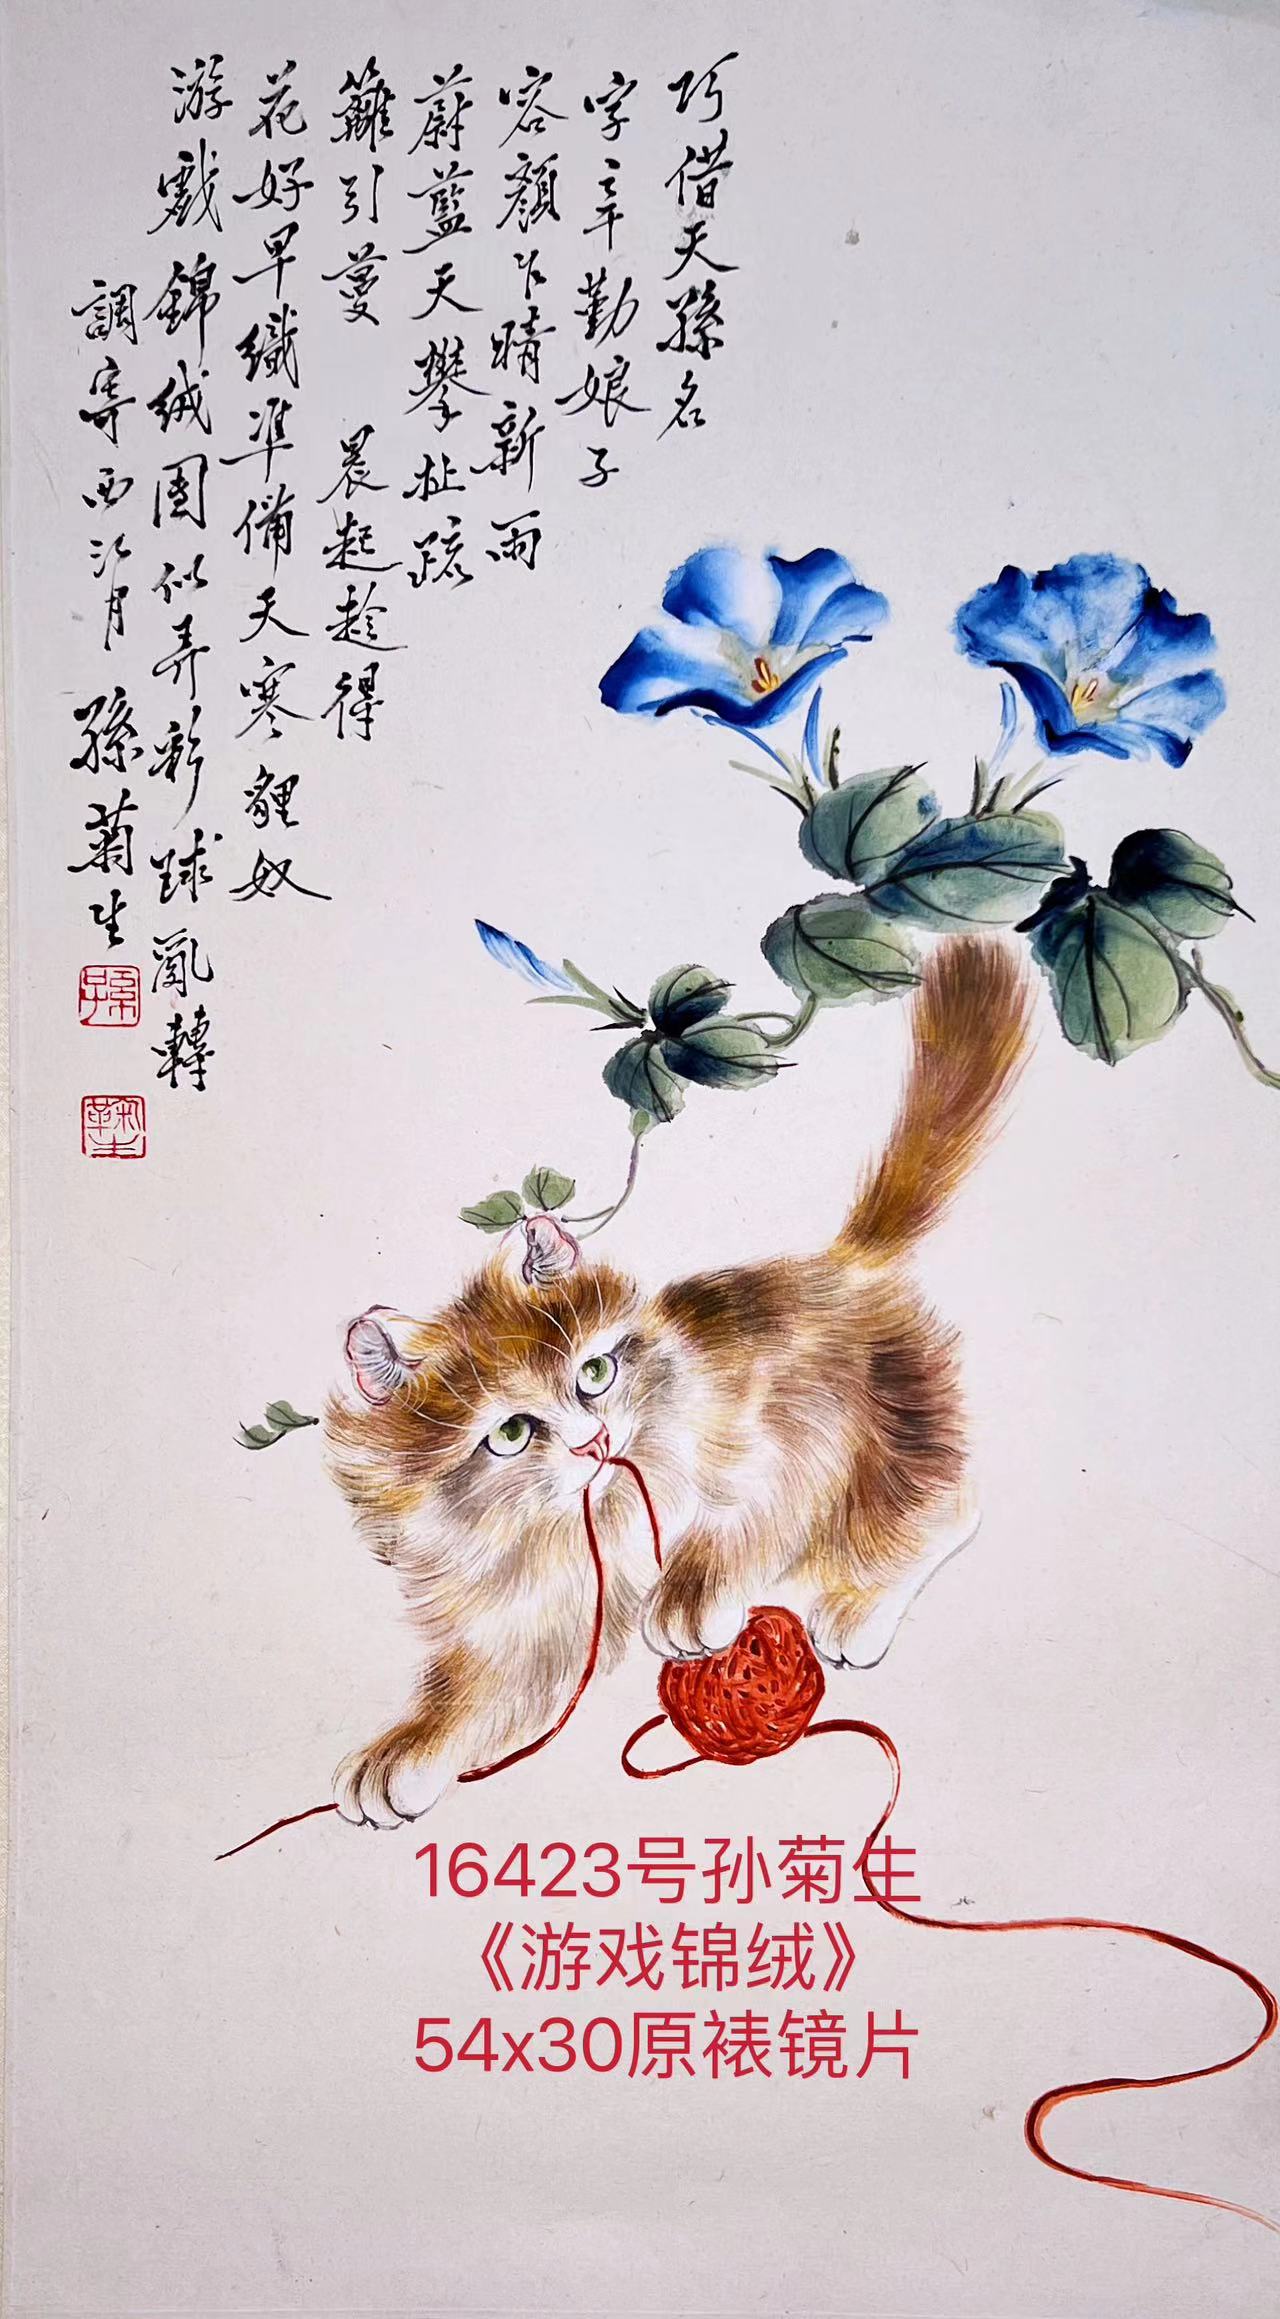 巧借天孫名
字辛勤娘子
容顏乍晴新雨
蔚藍天攀扯疏
籬引蔓 晨起趁得
花好早織準備天寒貍奴
游戲錦絨團似弄彩球亂轉
調寄西江月 孫菊生
孫
鞠生
16423号孙菊生
《游戏锦绒》
54x30原裱镜片